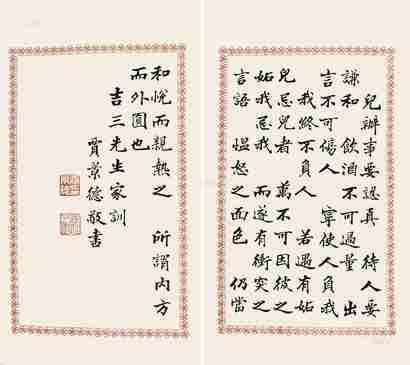 兒辦事要認真 待人要
謙和 飲酒不可過量 出
言不可傷人 寧使人負我
我終不負人 若遇有妬
兒忌兒者 萬不可因彼之
妬我忌我 而遂有衝突之
言語 慍怒之面色 仍當
和悅而親熱之 所謂內方
而外圓也
吉三先生家訓
賈景德敬書